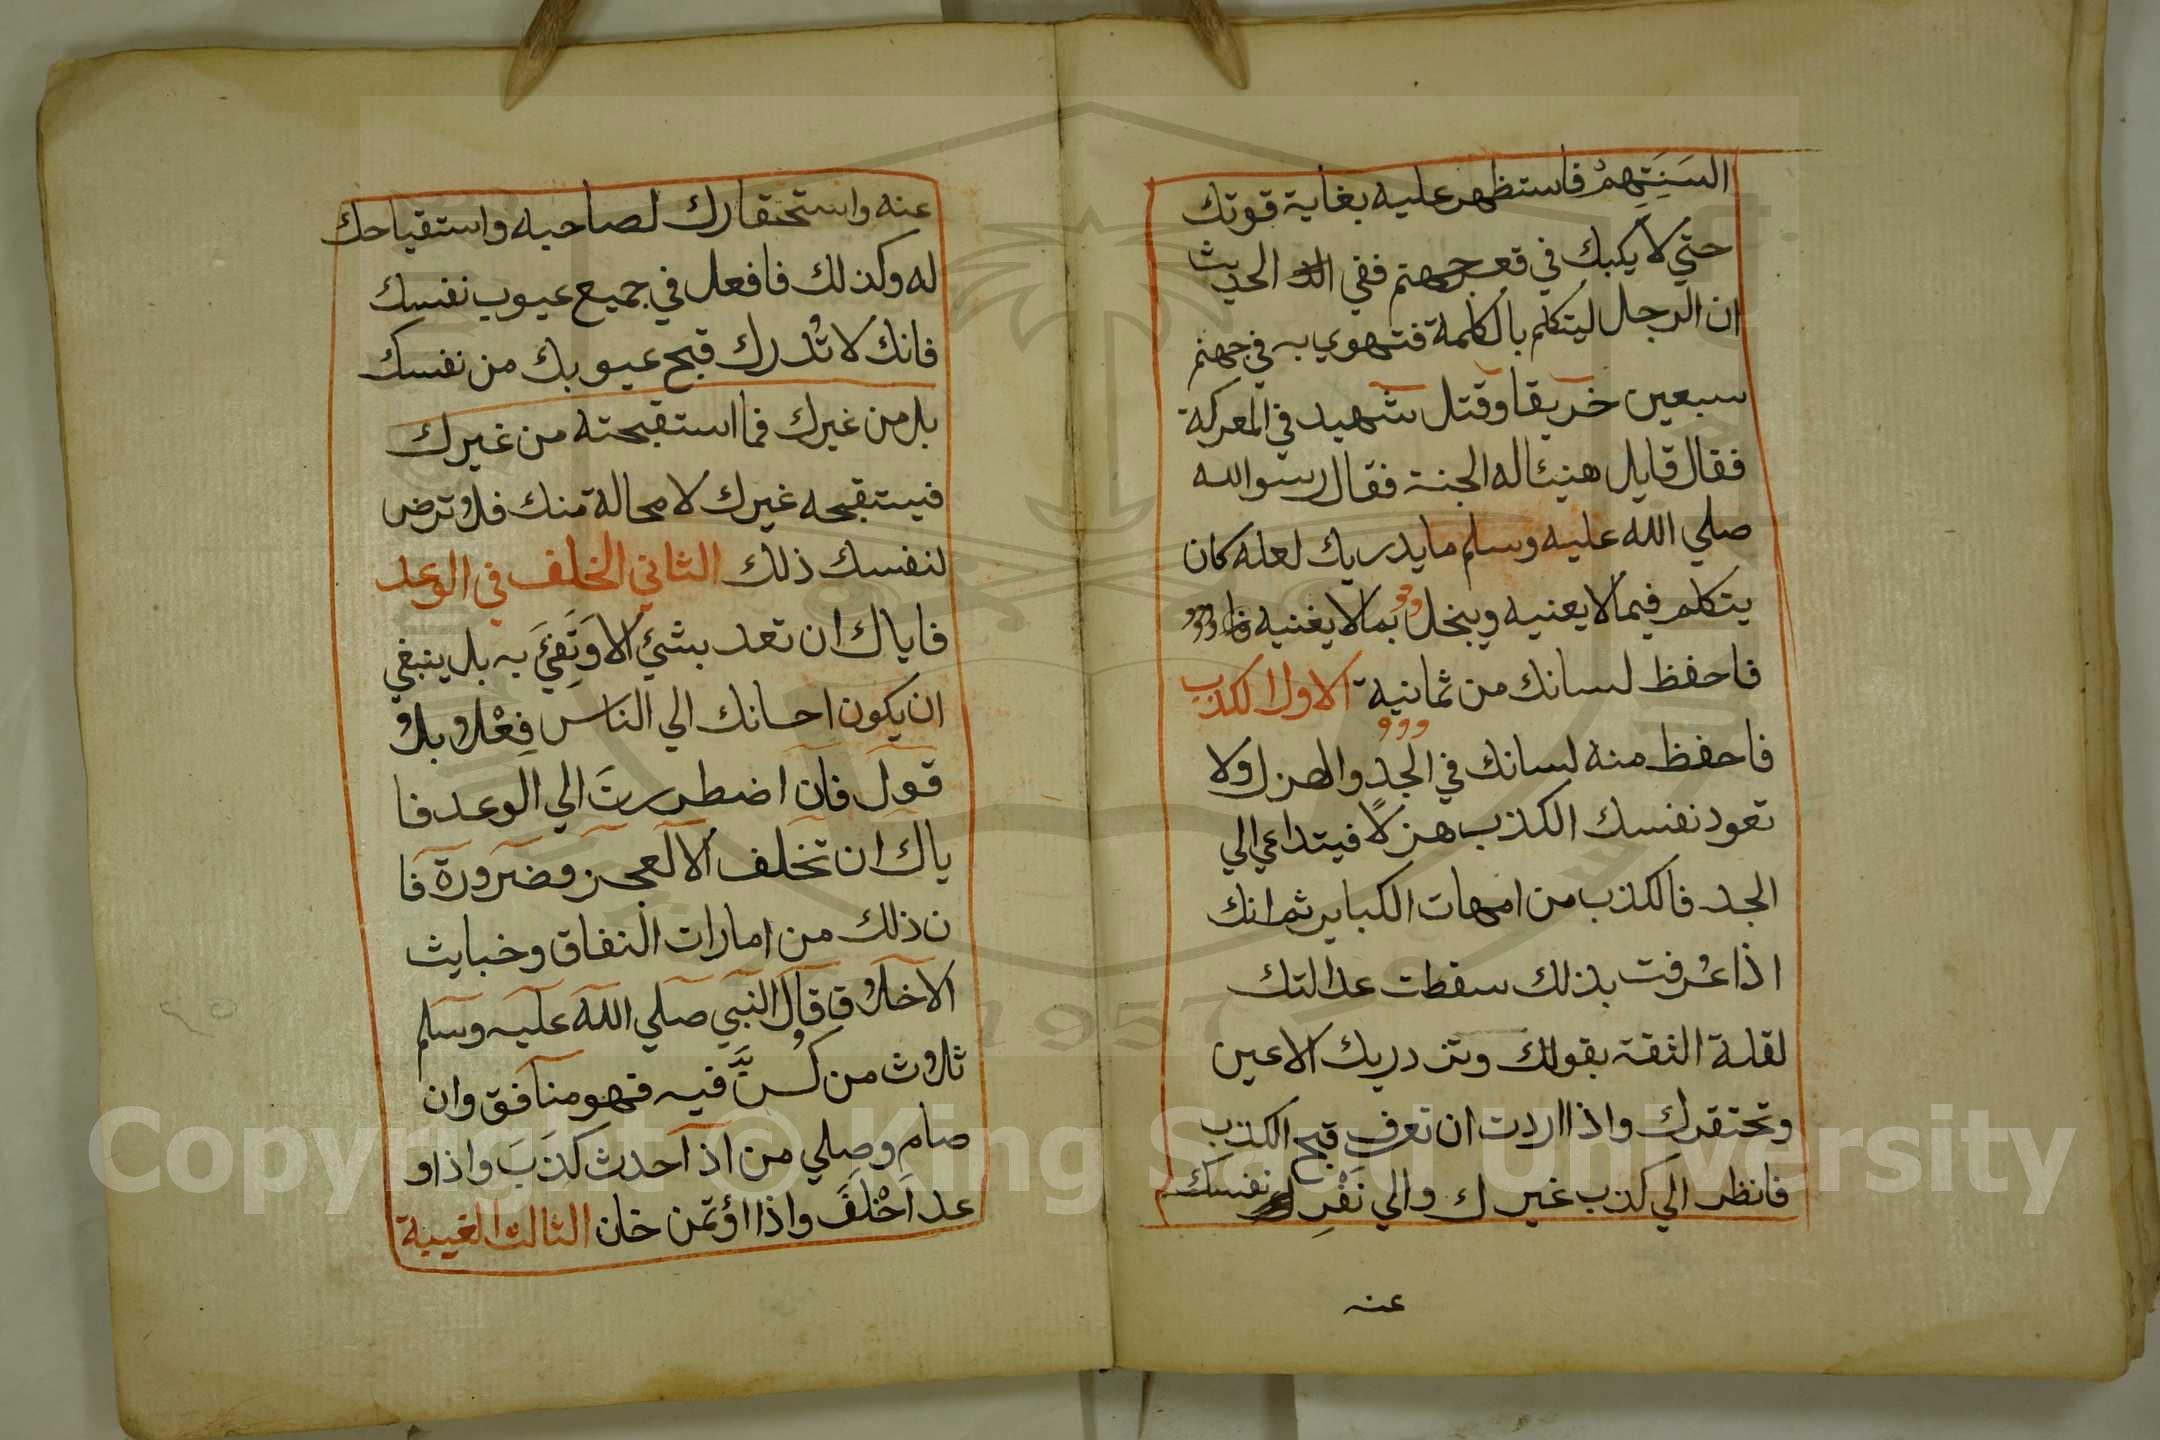 السَنَتِهِمْ فاستظهر عليه بغاية قوتك
حتي لا يكبك في قعر جهنم ففي الحديث
ان الرجل ليتكلم بالكلمة فتهوي به في جهنم
سبعين خريقا وقتل شهيد في المعركة
فقال قايل هنيئا له الجنة فقال رسوالله
صلي الله عليه وسلم ما يدريك لعله كان
يتكلم فيما لا يعنيه ويبخل بما لا يغنيه
فاحفظ لسانك من ثمانية الاول الكذب
فاحفظ منه لسانك في الجد والهزل ولا
تعود نفسك الكذب هزلًا فيتداعي الي
الجد فالكذب من امهات الكباير ثم انك
اذا عُرفت بذلك سقطت عدالتك
لقلة الثقة بقولك وتزدريك الاعين
وتحتقرك واذا اردت ان تعرف قبح الكذب
فانظر الي كذب غيرك والي نَفْرِ نفسك
عنه
عنه واستحقارك لصاحبه واستقباحك
له وكذلك فافعل في جميع عيوب نفسك
فانك لا تُدرك قبح عيوبك من نفسك
بل من غيرك فما استقبحته من غيرك
فيستقبحه غيرك لا محالة منك فلا ترض
لنفسك ذلك الثاني الخلف في الوعد
فاياك ان تعد بشيء الا وَتَفِيَ به بل ينبغي
ان يكون احسانك الي الناس فِعْلا بلا
قول فان اضطررتَ الي الوعد فا
ياك ان تخلف الا لعجز وضرورة فا
ن ذلك من امارات النفاق وخبايث
الاخلاق قال النبي صلي الله عليه وسلم
ثلاث من كُنَّ فيه فهو منافق وان
صام وصلي من اذا حدث كَذَبَ واذا و
عد اَخْلَفَ واذا اؤتمن خان الثالث الغيبة
Copyright © King Saud University
1957